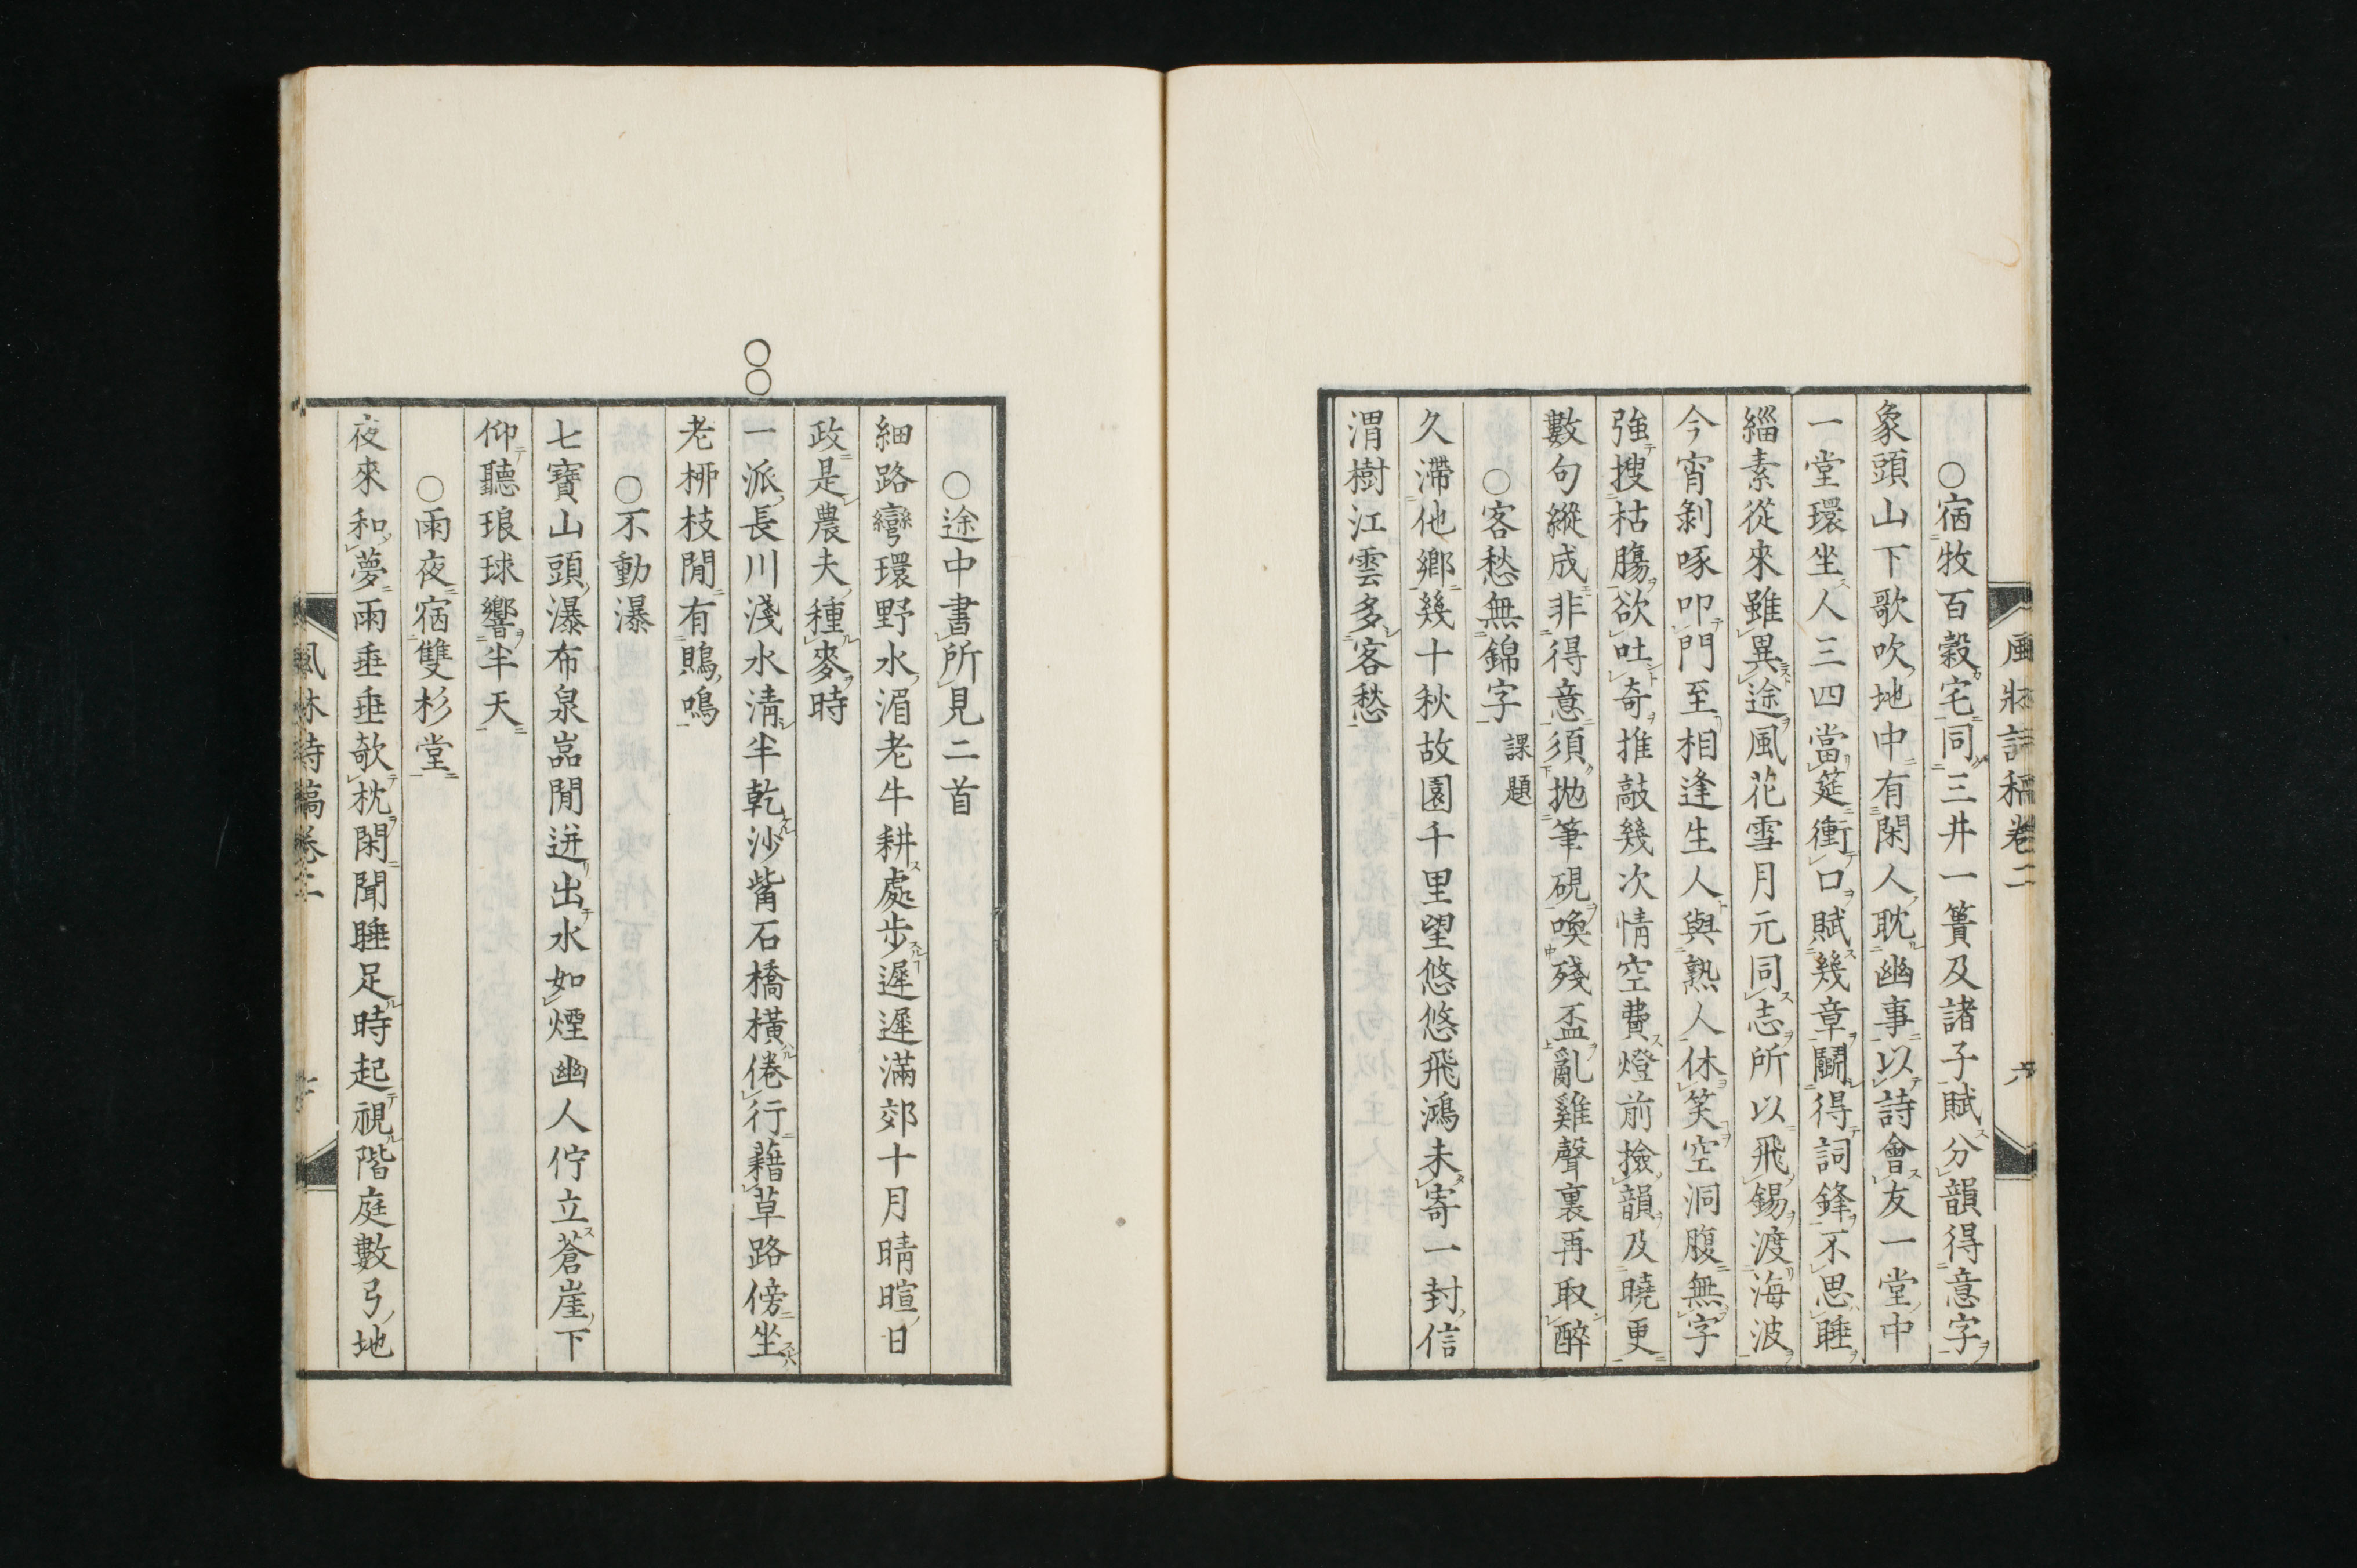 ○宿牧百穀宅同三井一簣及諸子賦分韻得意字
象頭山下歌吹地中有閑人耽幽事以詩會友一堂中
一堂環坐人三四當筵衝口賦幾章鬭得詞鋒不思睡
緇素從來雖異途風花雪月元同志所以飛錫渡海波
今宵剝啄叩門至相逢生人與熟人休笑空洞腹無字
強搜枯腸欲吐奇推敲幾次情空費燈前撿韻及曉更
數句縱成非得意須拋筆硯喚殘盃亂雞聲裏再取醉
○客愁無錦字 課題
久滯他鄉幾十秋故園千里望悠悠飛鴻未寄一封信
渭樹江雲多客愁
○途中書所見二首
細路彎環野水湄老牛耕處步遲遲滿郊十月晴暄日
政是農夫種麥時
一派長川淺水清半乾沙觜石橋橫倦行藉草路傍坐
老柳枝閒有鵙鳴
○不動瀑
七寶山頭瀑布泉嵓閒迸出水如煙幽人佇立蒼崖下
仰聽琅球響半天
○雨夜宿雙杉堂
夜來和夢雨垂垂欹枕閑聞睡足時起視階庭數弓地
風林詩稿卷二